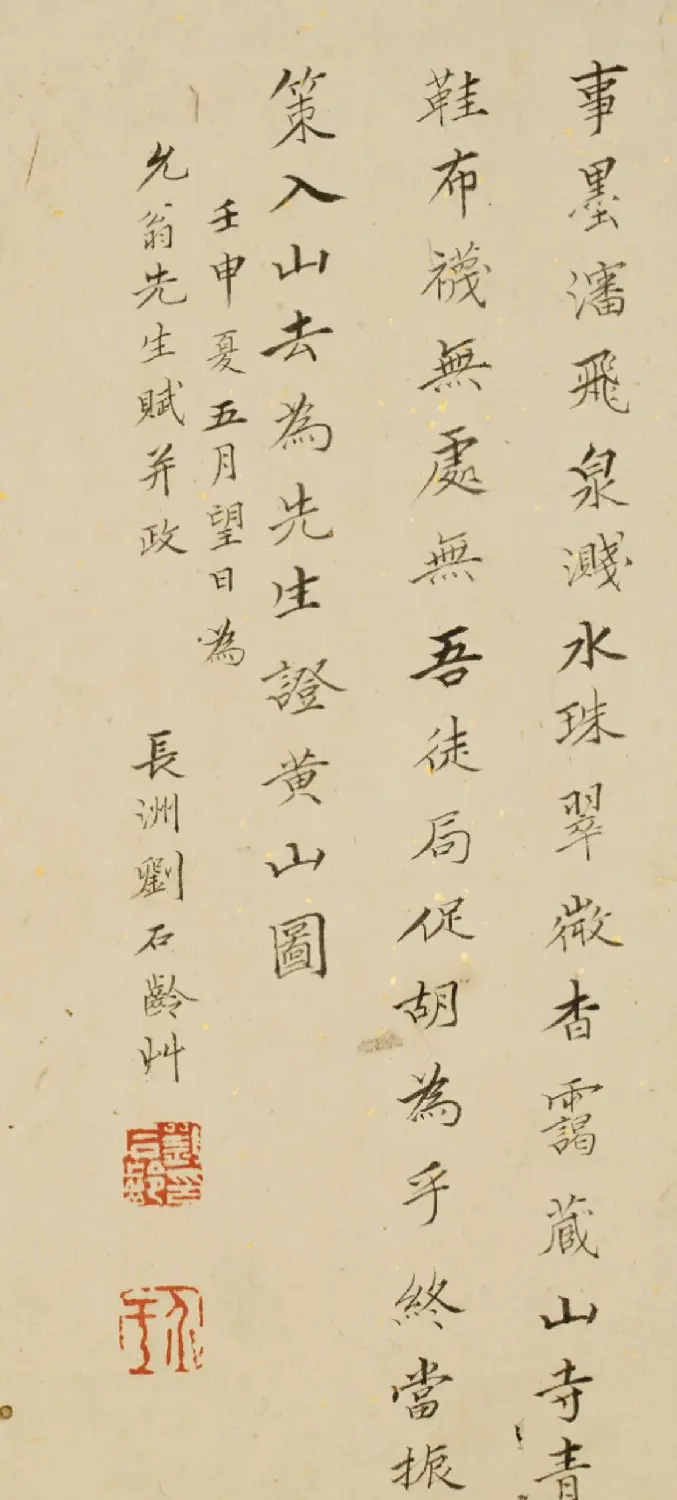 事墨瀋飛泉濺水珠翠微杳靄蔵山寺青
鞋布襪無處無吾徒局促胡為乎終當振
策入山去為先生證黄山圖
壬申夏五月望日為
允翁先生賦并政
長洲劉石齡艸